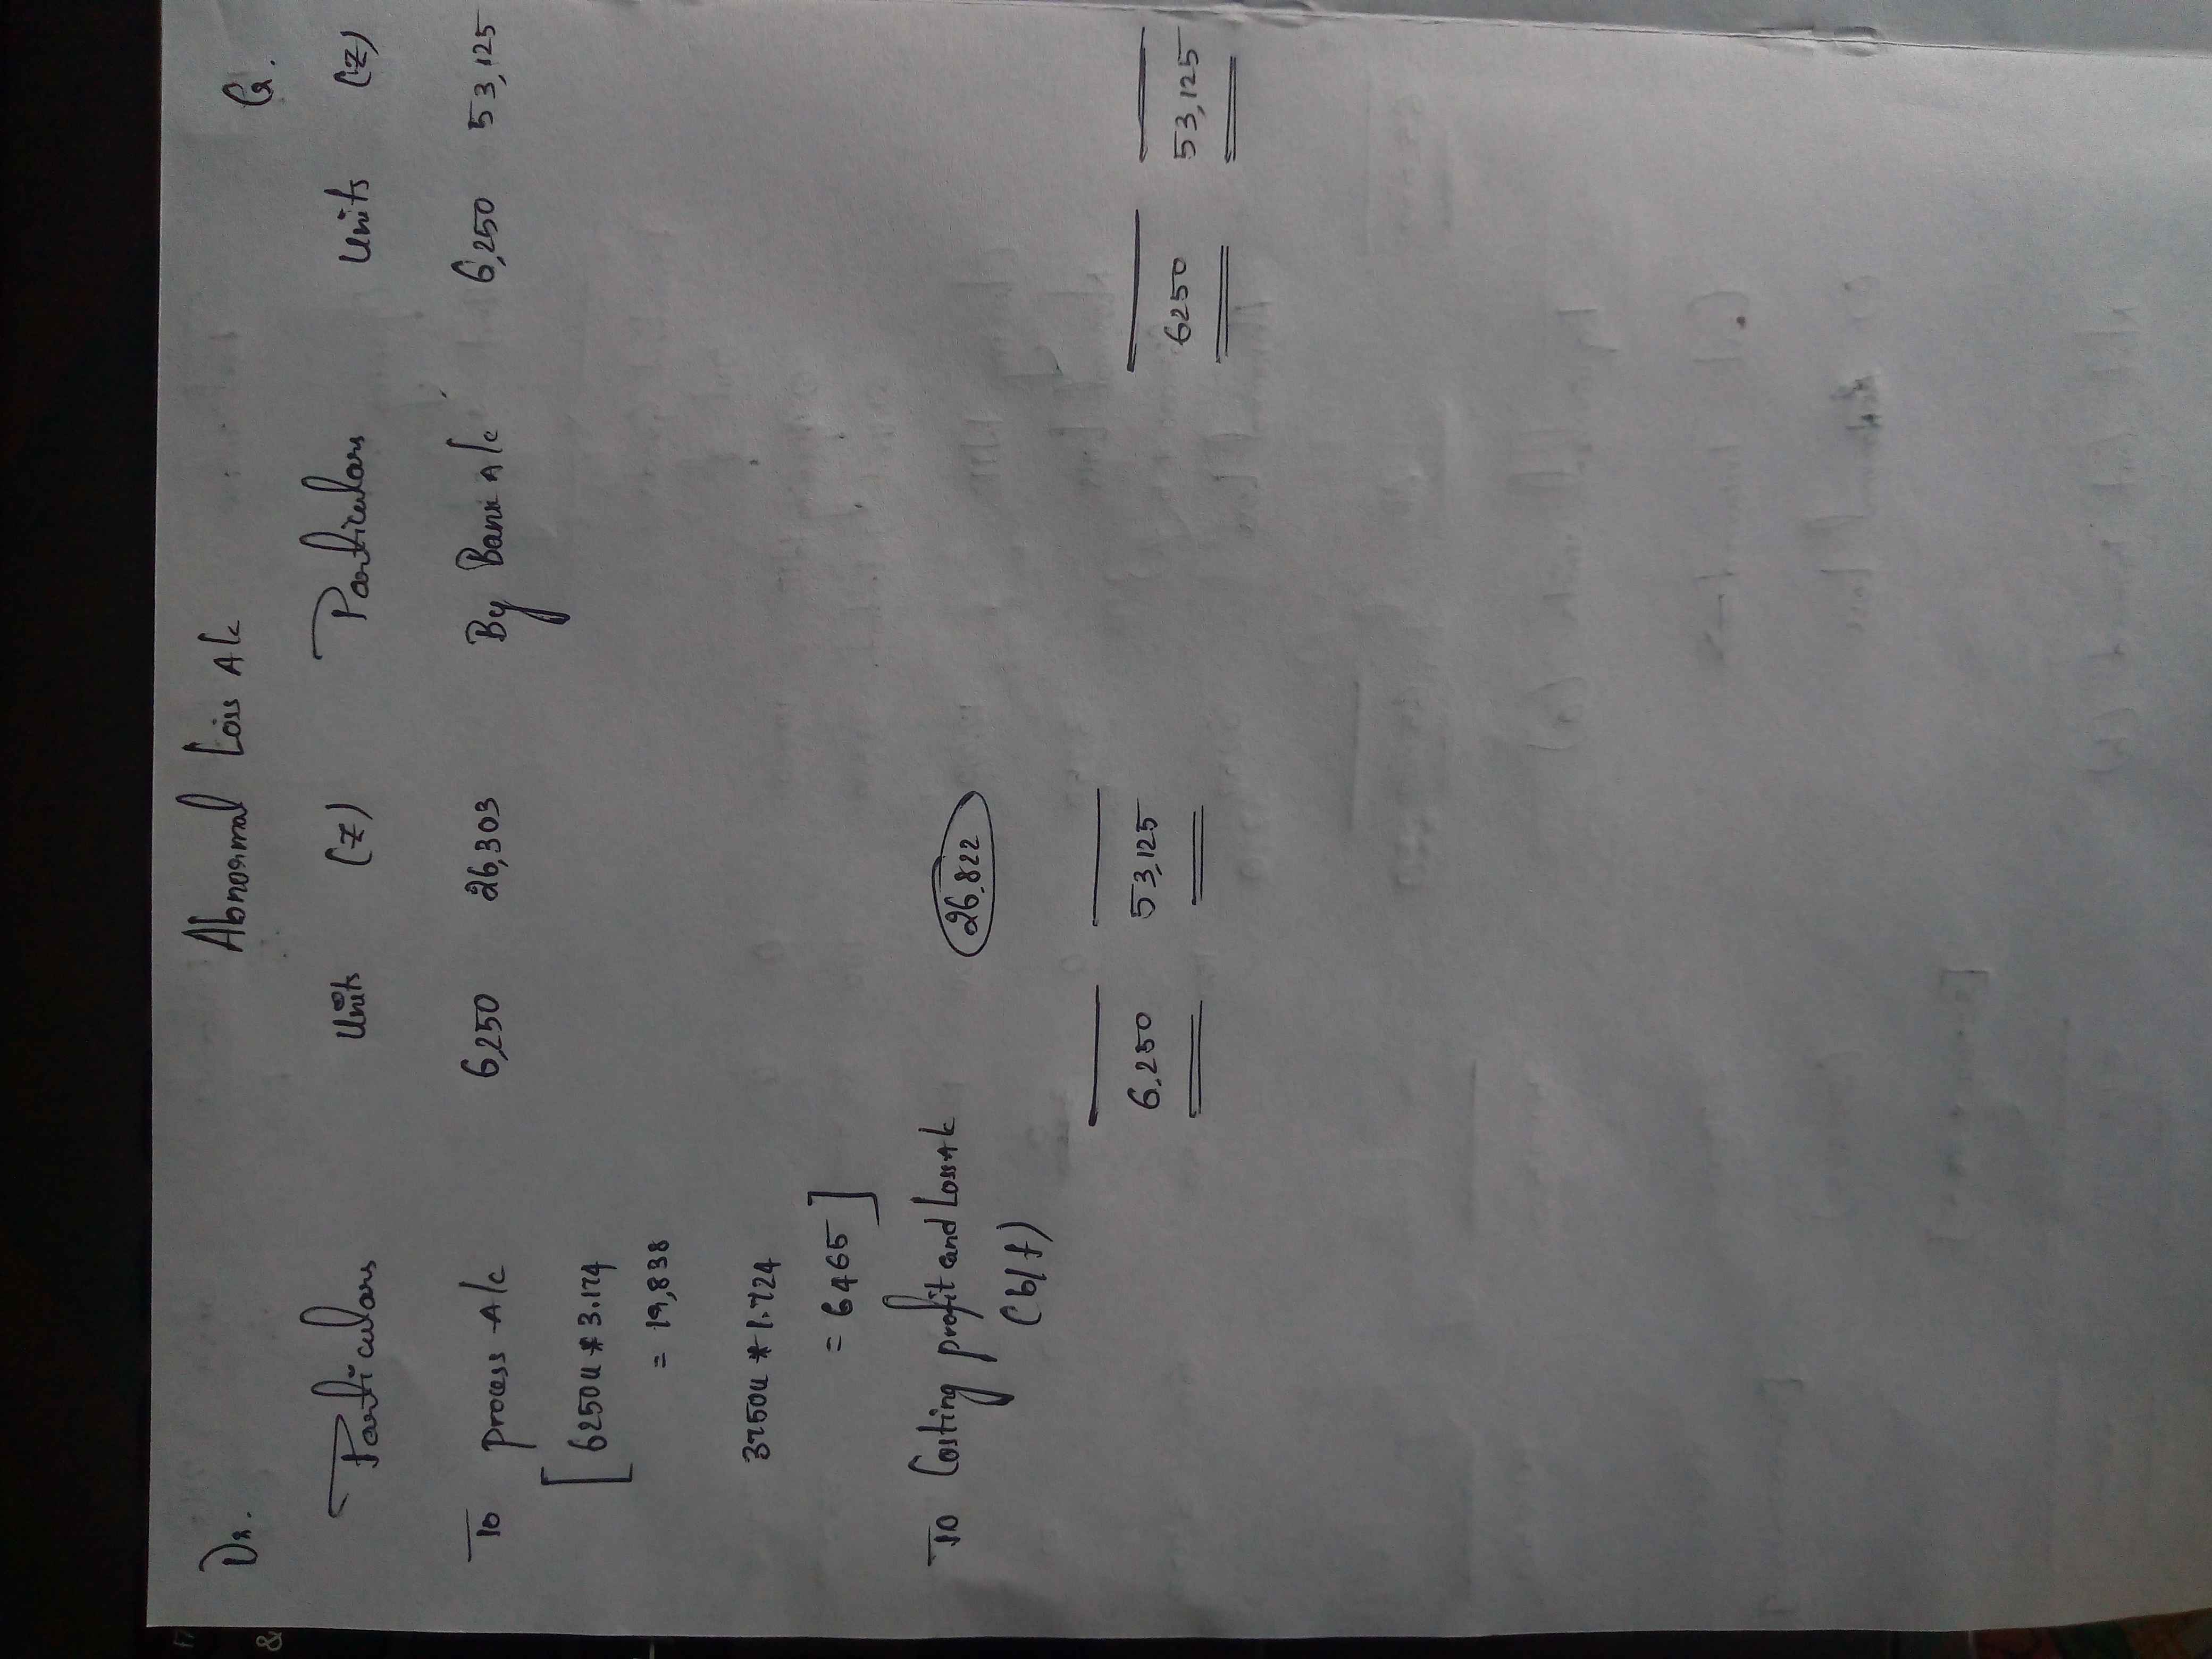 Abnormal Loss A/c
Dr. Cr.
Particulars Units (₹) Particulars Units (₹)
To process A/c 6,250 26,303 By Bank A/c 6,250 53,125
[6250u * 3.174
= 19,838
3750u * 1.724
= 6465]
To Costing profit and Loss A/c 26,822
(b/f)
6,250 53,125 6250 53,125
&